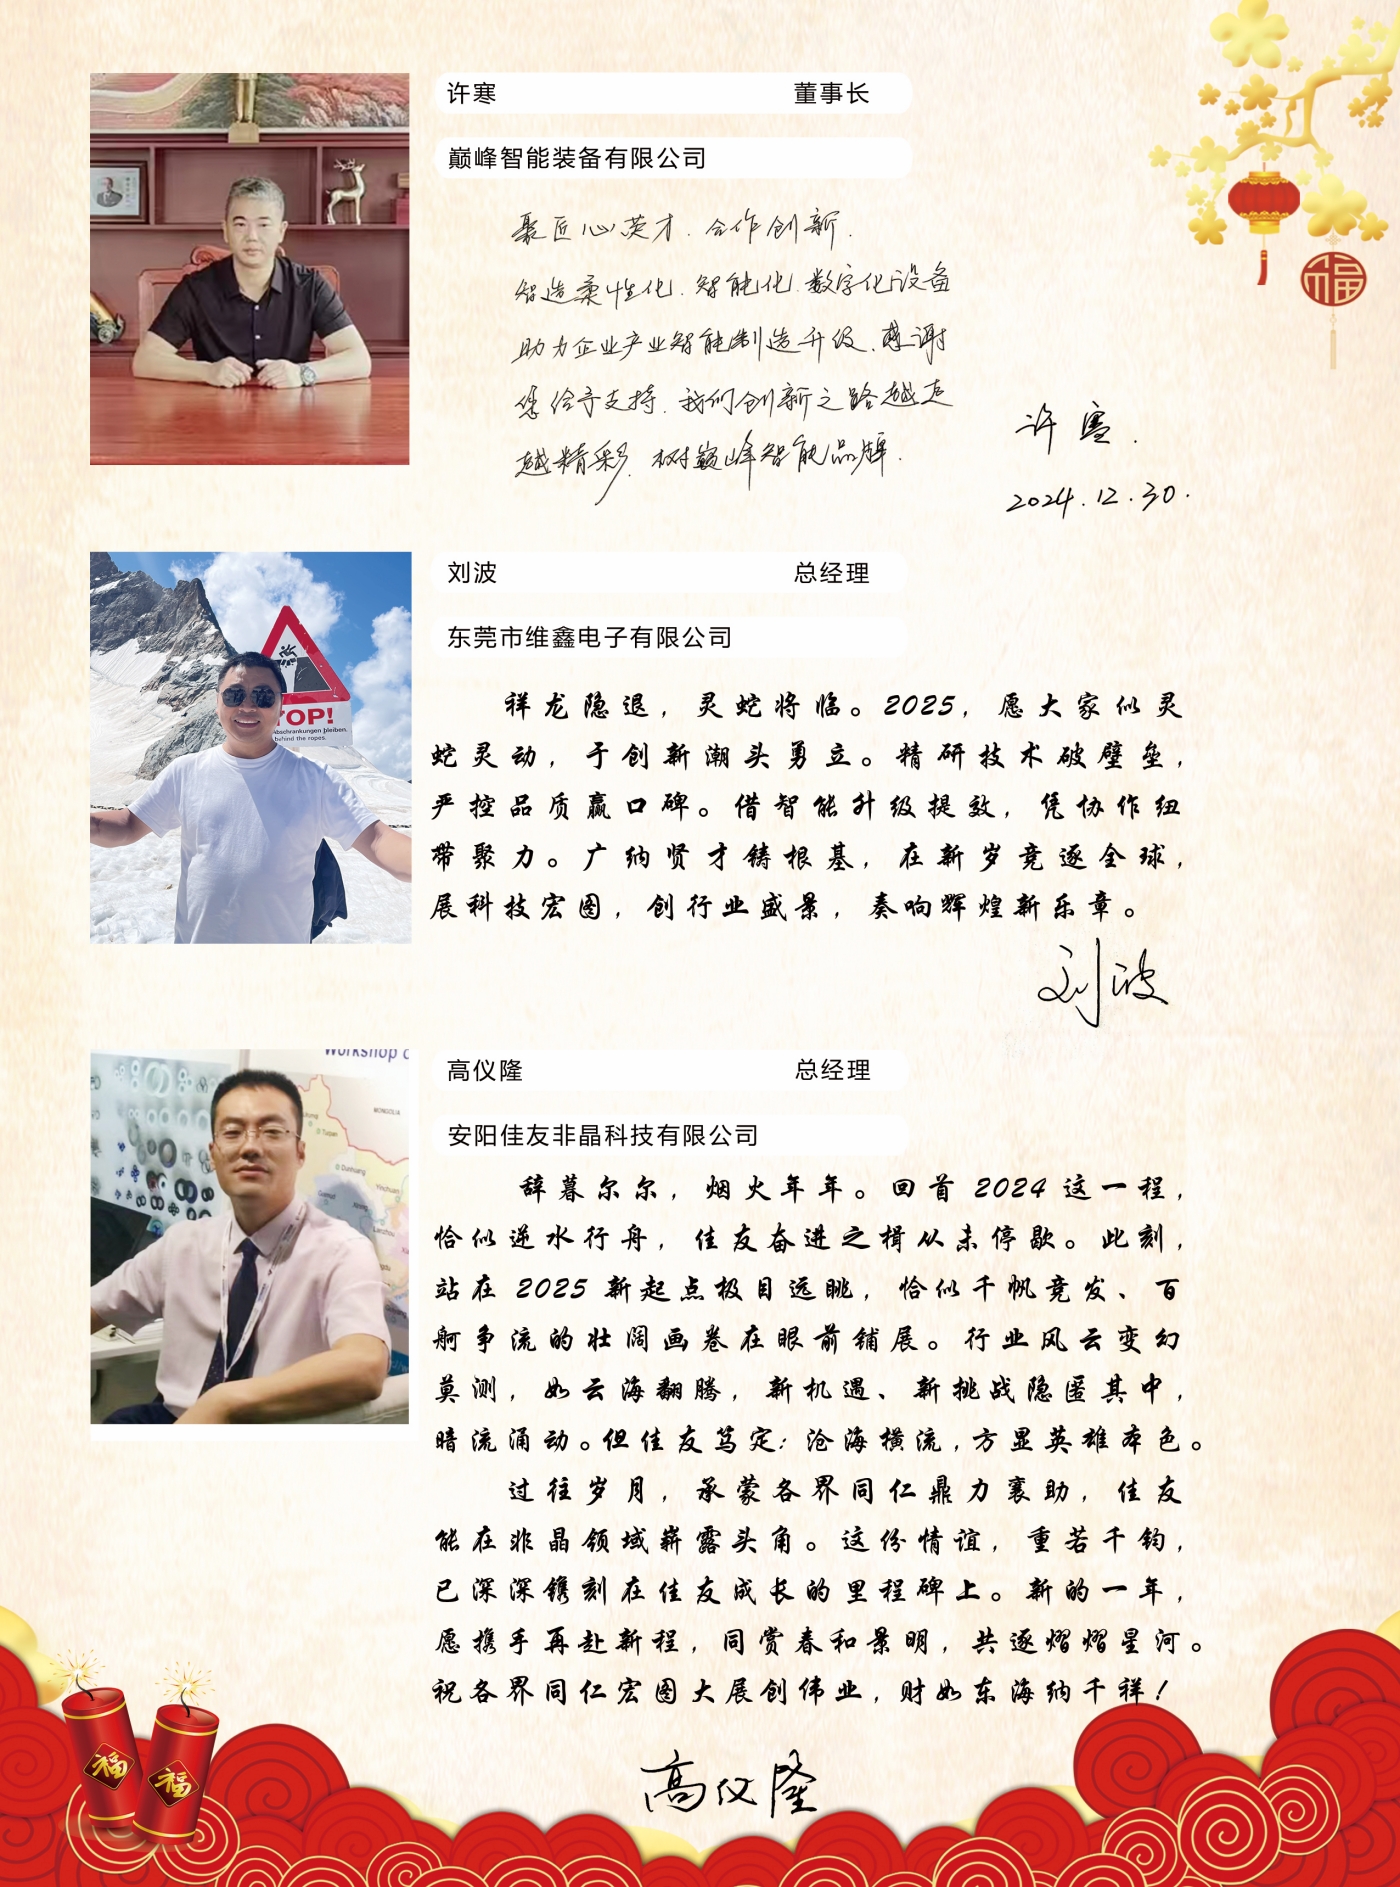 许寒 董事长
巅峰智能装备有限公司
聚匠心英才.合作创新.
智造柔性化.智能化.数字化设备
助力企业产业智能制造升级.感谢
您给予支持.我们创新之路越走
越精彩.树巅峰智能品牌.
许寒.
2024.12.30.
刘波 总经理
TOP!
Abschrankungen bleiben.
behind the ropes.
东莞市维鑫电子有限公司
祥龙隐退，灵蛇将临。2025，愿大家似灵
蛇灵动，于创新潮头勇立。精研技术破壁垒，
严控品质赢口碑。借智能升级提效，凭协作纽
带聚力。广纳贤才铸根基，在新岁竞逐全球，
展科技宏图，创行业盛景，奏响辉煌新乐章。
刘波
高仪隆 总经理
Workshop
MONGOLIA
Dunhuang
Yinchuan
Xining
Lanzhou
安阳佳友非晶科技有限公司
辞暮尔尔，烟火年年。回首 2024 这一程，
恰似逆水行舟，佳友奋进之楫从未停歇。此刻，
站在 2025 新起点极目远眺，恰似千帆竞发、百
舸争流的壮阔画卷在眼前铺展。行业风云变幻
莫测，如云海翻腾，新机遇、新挑战隐匿其中，
暗流涌动。但佳友笃定：沧海横流，方显英雄本色。
过往岁月，承蒙各界同仁鼎力襄助，佳友
能在非晶领域崭露头角。这份情谊，重若千钧，
已深深镌刻在佳友成长的里程碑上。新的一年，
愿携手再赴新程，同赏春和景明，共逐熠熠星河。
祝各界同仁宏图大展创伟业，财如东海纳千祥！
高仪隆
福
福
福